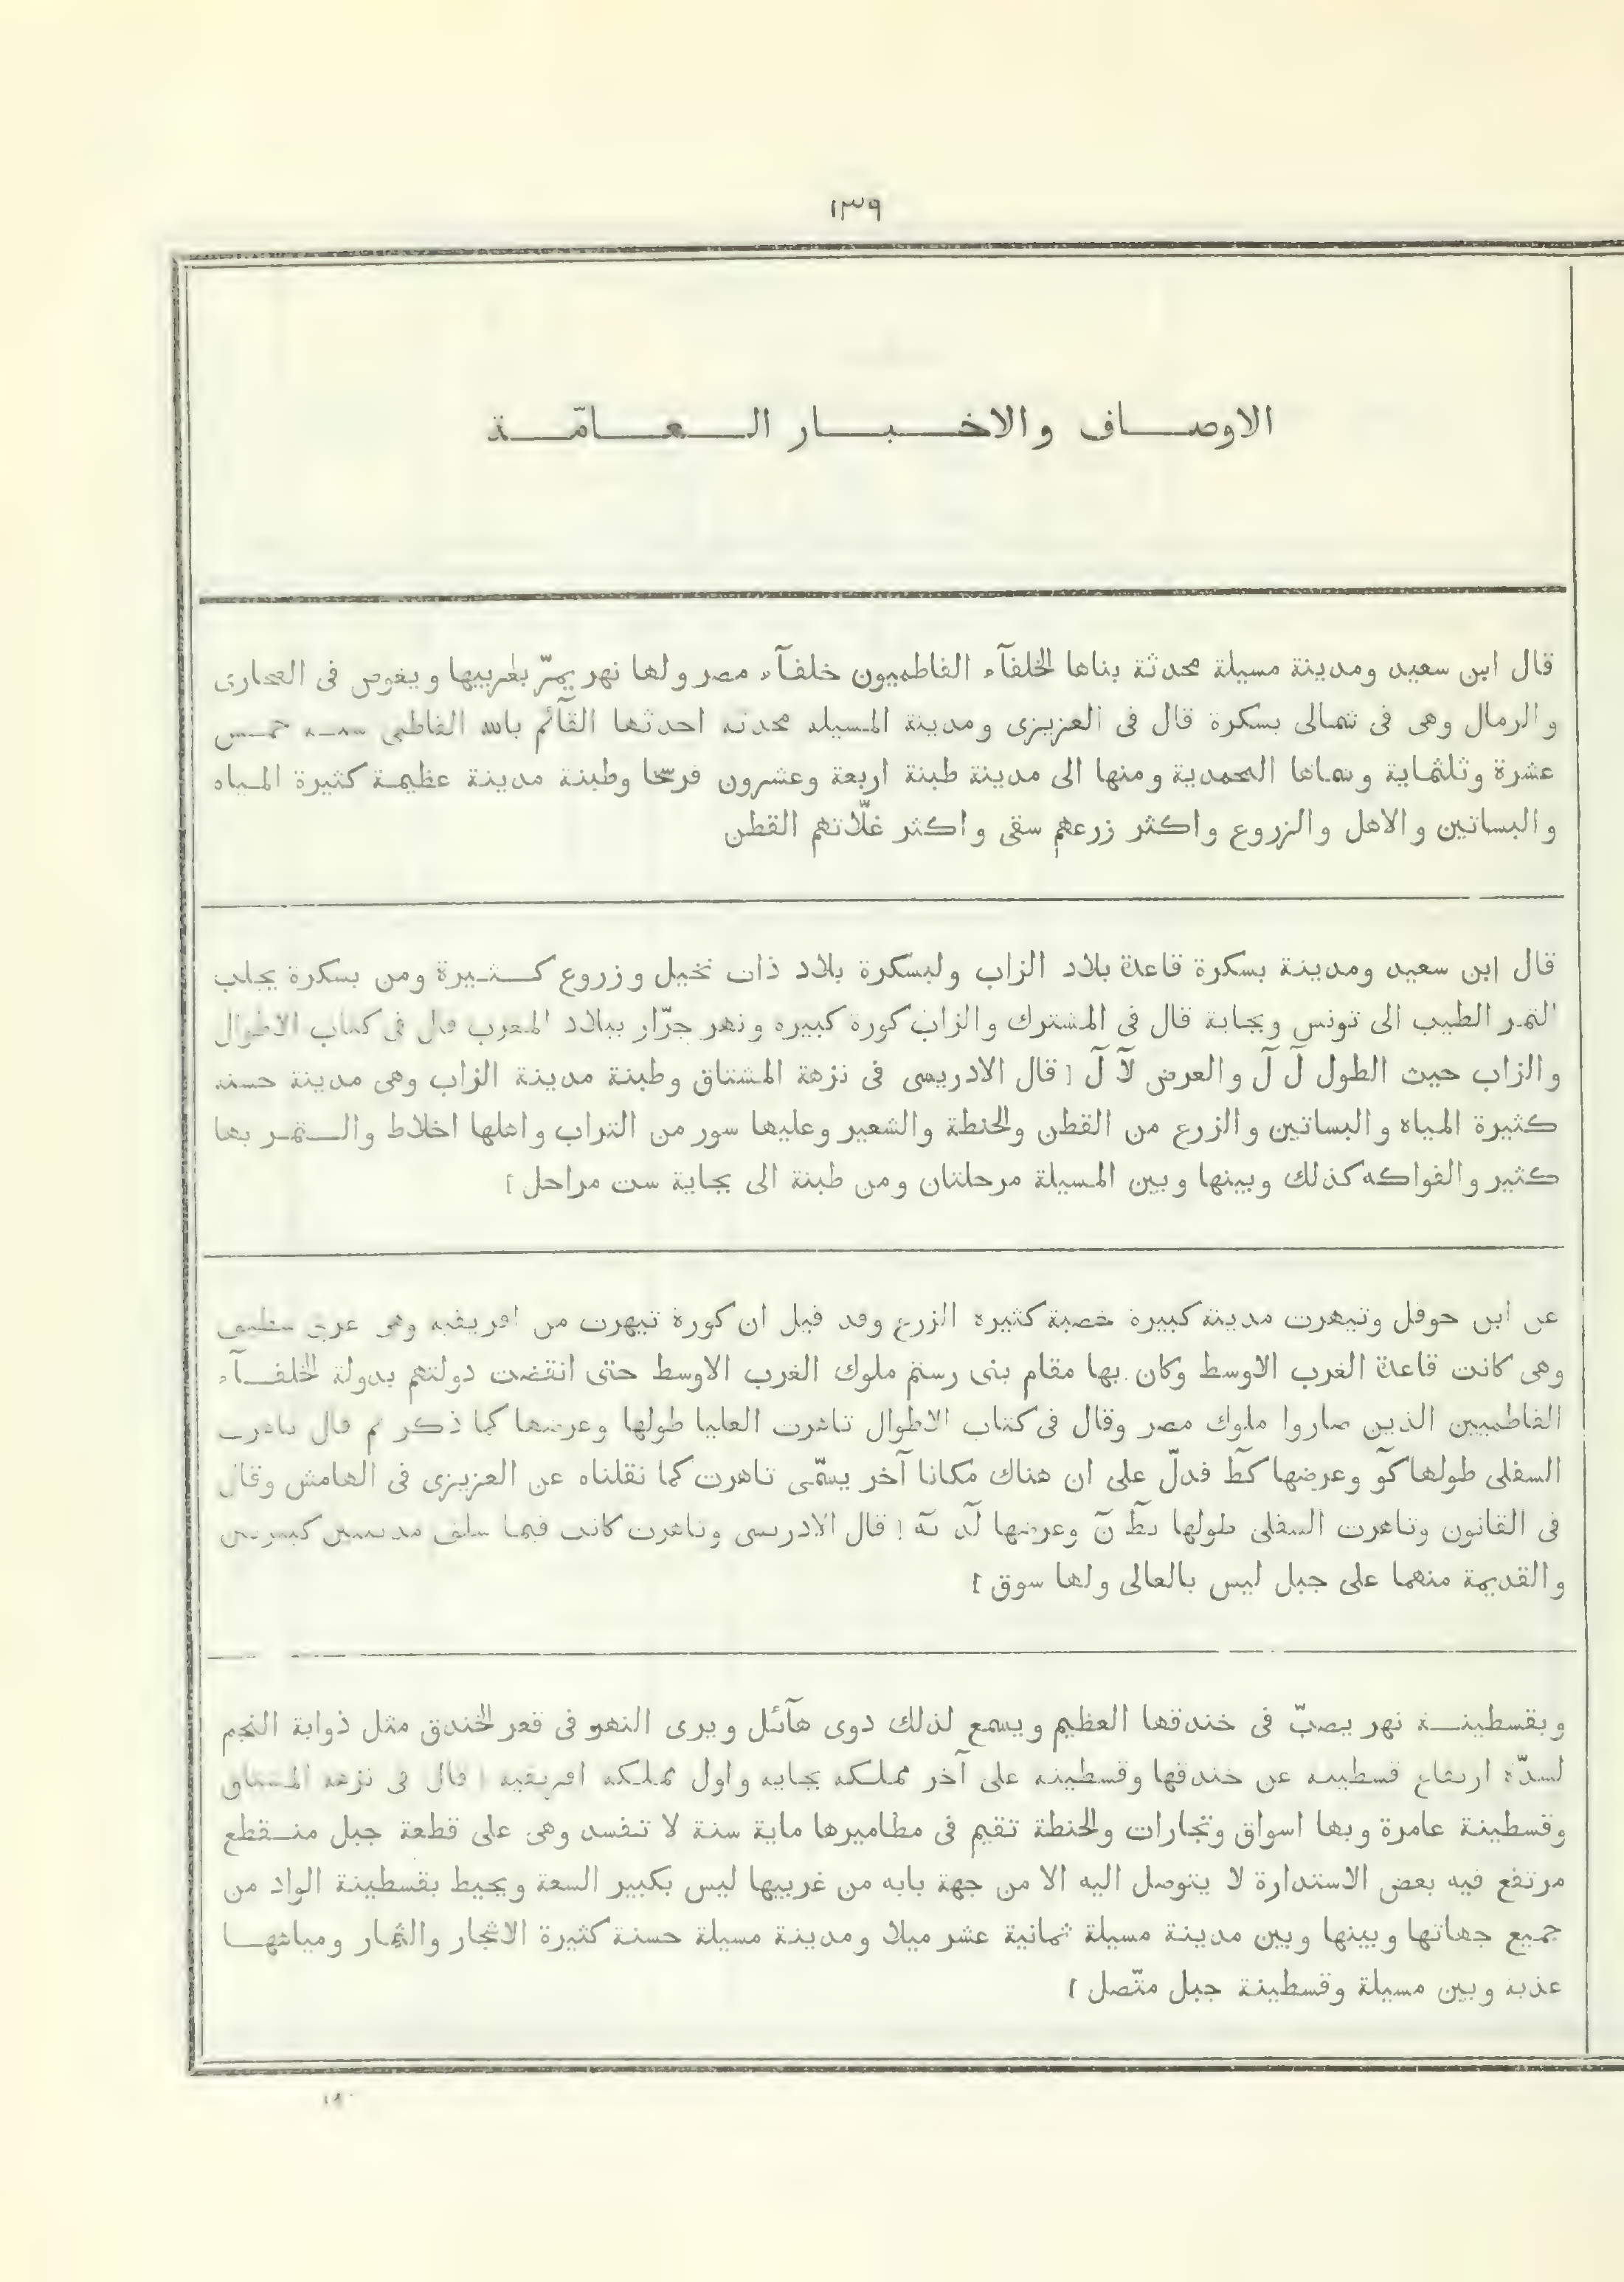 ١٣٩
الاوصاف والاخبار العامّة
قال ابن سعيد ومدينة مسيلة محدثة بناها الخلفآء الفاطميون خلفآء مصر ولها نهر يمرّ بغربيها ويغوص فى الصحارى
والرمال وهى فى شمالى بسكرة قال فى العزيزى ومدينة المسيلة محدثة احدثها القآئم بالله الفاطمى سنة خمس
عشرة وثلثماية وسماها المحمدية ومنها الى مدينة طبنة اربعة وعشرون فرسخا وطبنة مدينة عظيمة كثيرة المياه
والبساتين والاهل والزروع واكثر زرعهم سقى واكثر غلّاتهم القطن
قال ابن سعيد ومدينة بسكرة قاعدة بلاد الزاب ولبسكرة بلاد ذات نخيل وزروع كثيرة ومن بسكرة يجلب
التمر الطيب الى تونس وبجاية قال فى المشترك والزاب كورة كبيرة ونهر جرّار ببلاد المغرب قال فى كتاب الاطوال
والزاب حيث الطول لَ لَ والعرض لآ لَ [ قال الادريسى فى نزهة المشتاق وطبنة مدينة الزاب وهى مدينة حسنة
كثيرة المياه والبساتين والزرع من القطن والحنطة والشعير وعليها سور من التراب واهلها اخلاط والتمر بها
كثير والفواكه كذلك وبينها وبين المسيلة مرحلتان ومن طبنة الى بجاية ست مراحل ]
عن ابن حوقل وتيهرت مدينة كبيرة خصبة كثيرة الزرع وقد قيل ان كورة تيهرت من افريقية وهى غربى سطيف
وهى كانت قاعدة الغرب الاوسط وكان بها مقام بنى رستم ملوك الغرب الاوسط حتى انقضت دولتهم بدولة الخلفآء
الفاطميين الذين صاروا ملوك مصر وقال فى كتاب الاطوال تاهرت العليا طولها وعرضها كما ذكر ثم قال تاهرت
السفلى طولها كو وعرضها كط فدلّ على ان هناك مكانا آخر يسمّى تاهرت كما نقلناه عن العزيزى فى الهامش وقال
فى القانون وتاهرت السفلى طولها يط ن وعرضها لد يه [ قال الادريسى وتاهرت كانت فيما سلف مدينتين كبيرتين
والقديمة منهما على جبل ليس بالعالى ولها سوق ]
وبقسطينة نهر يصبّ فى خندقها العظيم ويسمع لذلك دوى هآئل ويرى النهر فى قعر الخندق مثل ذوابة النجم
لشدّة ارتفاع قسطينة عن خندقها وقسطينة على آخر مملكة بجاية واول مملكة افريقية [ قال فى نزهة المشتاق
وقسطينة عامرة وبها اسواق وتجارات والحنطة تقيم فى مطاميرها ماية سنة لا تفسد وهى على قطعة جبل منقطع
مرتفع فيه بعض الاستدارة لا يتوصل اليه الا من جهة بابه من غربيها ليس بكبير السعة ويحيط بقسطينة الواد من
جميع جهاتها وبينها وبين مدينة مسيلة ثمانية عشر ميلا ومدينة مسيلة حسنة كثيرة الاشجار والثمار ومياهها
عذبة وبين مسيلة وقسطينة جبل متّصل ]